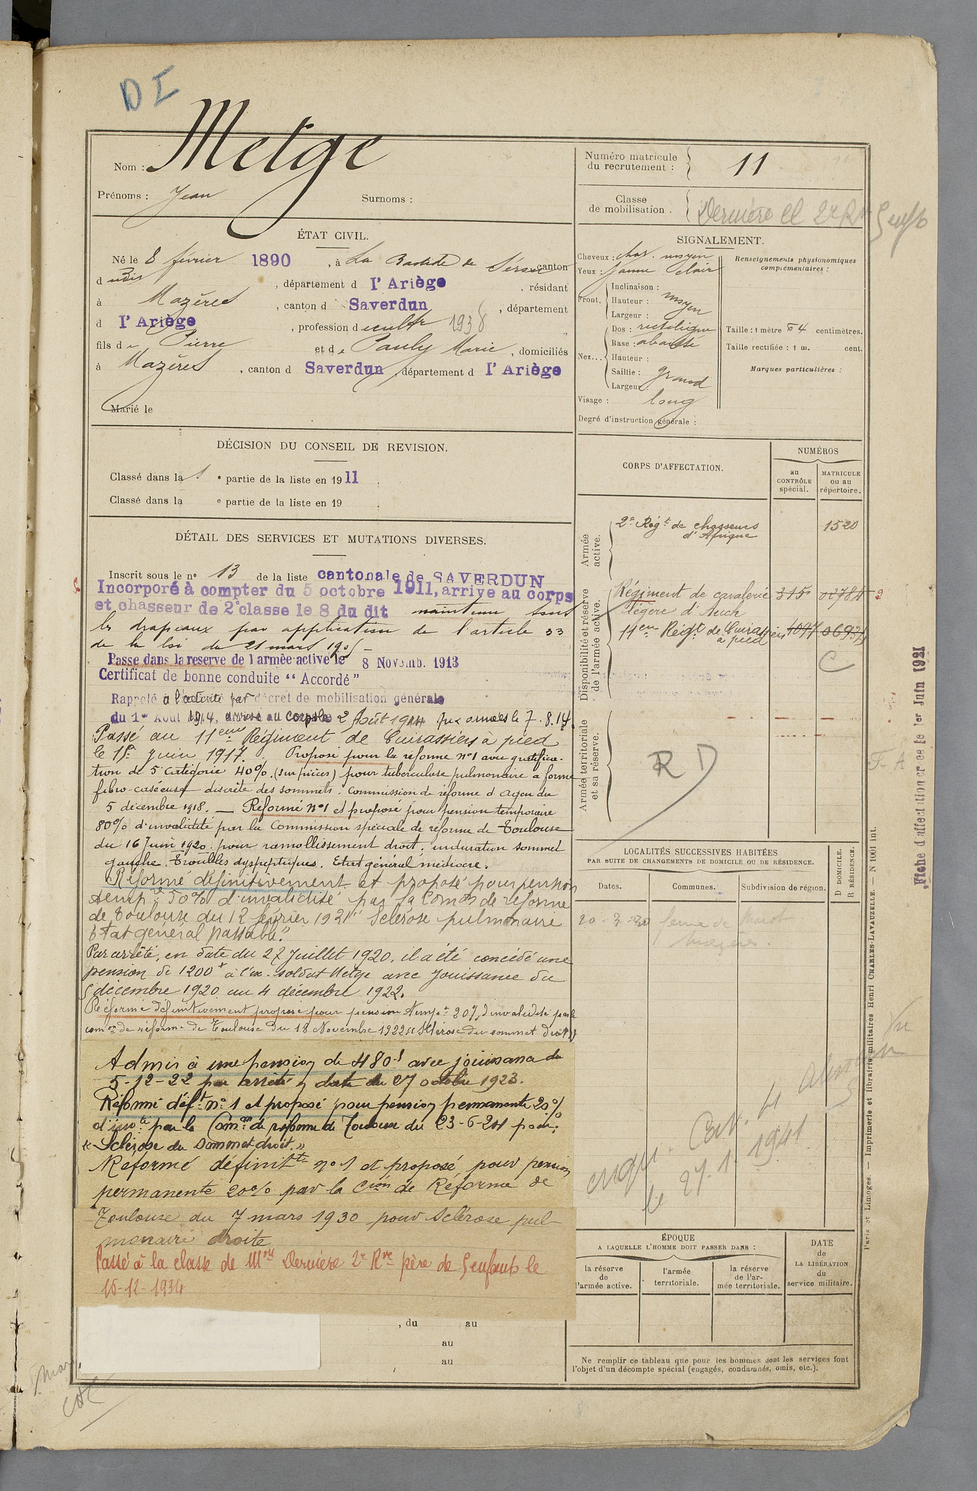 DI
Nom : Metge
Prénoms : Jean Surnoms :
Numéro matricule du recrutement : 11
Classe de mobilisation : Dernière Cl 2e Rve 5 enfts
ÉTAT CIVIL.
Né le 8 février 1890, à La Bastide de Sérou, canton
dudit, département d l'Ariège, résidant
à Mazères, canton d Saverdun, département
d l'Ariège, profession d 1938
fils de Pierre et de Pauly Marie, domiciliés
à Mazères, canton d Saverdun, département d l'Ariège
Marié le
SIGNALEMENT.
Cheveux : chat. moyen
Yeux : jaune clair
Front. Inclinaison :
Hauteur : moyen
Largeur :
Nez... Dos : rectiligne
Base : abaissée
Hauteur :
Saillie : grand
Largeur
Visage : long
Degré d'instruction générale :
Renseignements physionomiques complémentaires :
Taille : 1 mètre 54 centimètres.
Taille rectifiée : 1 m. cent.
Marques particulières :
DÉCISION DU CONSEIL DE REVISION.
Classé dans la 1 e partie de la liste en 1911
Classé dans la e partie de la liste en 19
DÉTAIL DES SERVICES ET MUTATIONS DIVERSES.
Inscrit sous le n° 13 de la liste cantonale de SAVERDUN
Incorporé à compter du 5 octobre 1911, arrive au corps
et chasseur de 2e classe le 8 du dit maintenu sous
les drapeaux par application de l'article 33
de la loi du 21 mars 1905
Passe dans la reserve de l'armée active le 8 Novemb. 1913
Certificat de bonne conduite " Accordé "
Rappelé à l'activité par décret de mobilisation générale
du 1er Août 1914, arrivé au corps le 2 Août 1914 aux armées le 7.8.14
Passé au 11eme Régiment de Cuirassiers à pied
le 1er juin 1917. Proposé pour la réforme n°1 avec gratifica-
tion de 5e catégorie 40% (sur pièces) pour tuberculose pulmonaire à forme
fibro-caséeuse discrète des sommets. Commission de réforme d'Agen du
5 décembre 1918. — Réformé n°1 et proposé pour pension temporaire
80% d'invalidité par la Commission spéciale de réforme de Toulouse
du 16 Juin 1920. pour ramollissement droit, induration sommet
gauche. Troubles dyspeptiques. Etat général médiocre.
Réformé définitivement et proposé pour pension
temp re 50% d'invalidité par la Comon de réforme
de Toulouse du 12 février 1921 " Sclérose pulmonaire
Etat général passable."
Par arrêté, en date du 27 Juillet 1920, il a été concédé une
pension de 1200 f à l'ex-soldat Metge avec jouissance du
5 décembre 1920 au 4 décembre 1922.
Réformé définitivement proposé pour pension temp re 20% d'invalidité par la
com on de réforme de Toulouse du 18 Novembre 1922 Sclérose du sommet droit
Admis à une pension de 480 f avec jouissance du
5-12-22 par arrêté en date du 27 octobre 1923.
Réformé déf t n°1 et proposé pour pension permanente 20%
d'inv té par la Com on de réforme de Toulouse du 23-6-24 pour:
" Sclérose du sommet droit "
Reformé définit te n°1 et proposé pour pension
permanente 20% par la C ion de Réforme de
Toulouse du 7 mars 1930 pour Sclérose pul-
monaire droite
Passé à la classe de M on Dernière 2e Rve père de 5 enfants le
15-12-1934
, du au
au
, au
CORPS D'AFFECTATION.
NUMÉROS
au CONTRÔLE spécial.
MATRICULE ou au répertoire.
Armée active.
2e Régt de chasseurs d'Afrique 1520
Disponibilité et réserve de l'armée active.
Régiment de cavalerie légère d'Auch
11eme Régt de Cuirassiers à pied
C
Armée territoriale et sa réserve.
RD
LOCALITÉS SUCCESSIVES HABITÉES
PAR SUITE DE CHANGEMENTS DE DOMICILE OU DE RÉSIDENCE.
Dates. Communes. Subdivision de région. D DOMICILE. R RÉSIDENCE.
Mazères
le 27.1.1941
ÉPOQUE
A LAQUELLE L'HOMME DOIT PASSER DANS :
la réserve de l'armée active.
l'armée territoriale.
la réserve de l'armée territoriale.
DATE DE LA LIBÉRATION du service militaire.
Ne remplir ce tableau que pour les hommes dont les services font
l'objet d'un décompte spécial (engagés, condamnés, omis, etc.).
Paris et Limoges. — Imprimerie et librairie militaires Henri CHARLES-LAVAUZELLE. — N 1001 int.
Fiche d'affectation créée le 1er Juin 1921
F. A